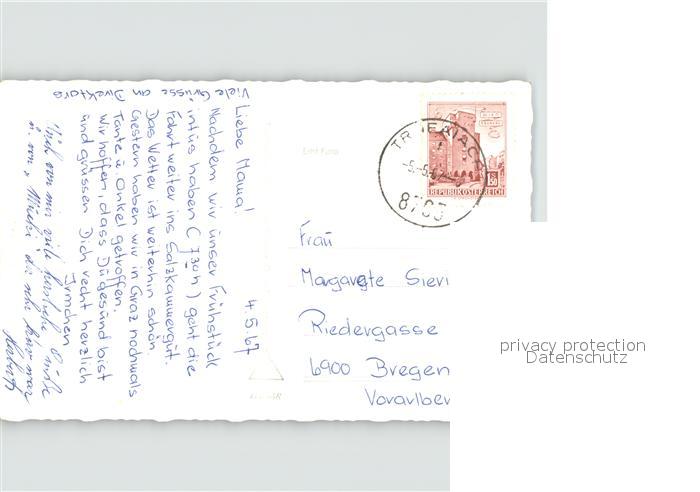 4.5.67
Liebe Mama!
Nachdem wir unser Frühstück
intus haben (7.30h) geht die
Fahrt weiter ins Salzkammergut.
Das Wetter ist weiterhin schön.
Gestern haben wir in Graz nochmals
Tante u. Onkel getroffen.
Wir hoffen, dass Du gesund bist
und grüssen Dich recht herzlich
Irmchen
Auch von mir viele herzliche Grüße
Herbert
Viele Grüsse an Direktors
Echt Foto
TROFAIACH
8793
REPUBLIK ÖSTERREICH
Frau
Margarete Sieri
Riedergasse
6900 Bregen
Vorarlber
privacy protection
Datenschutz